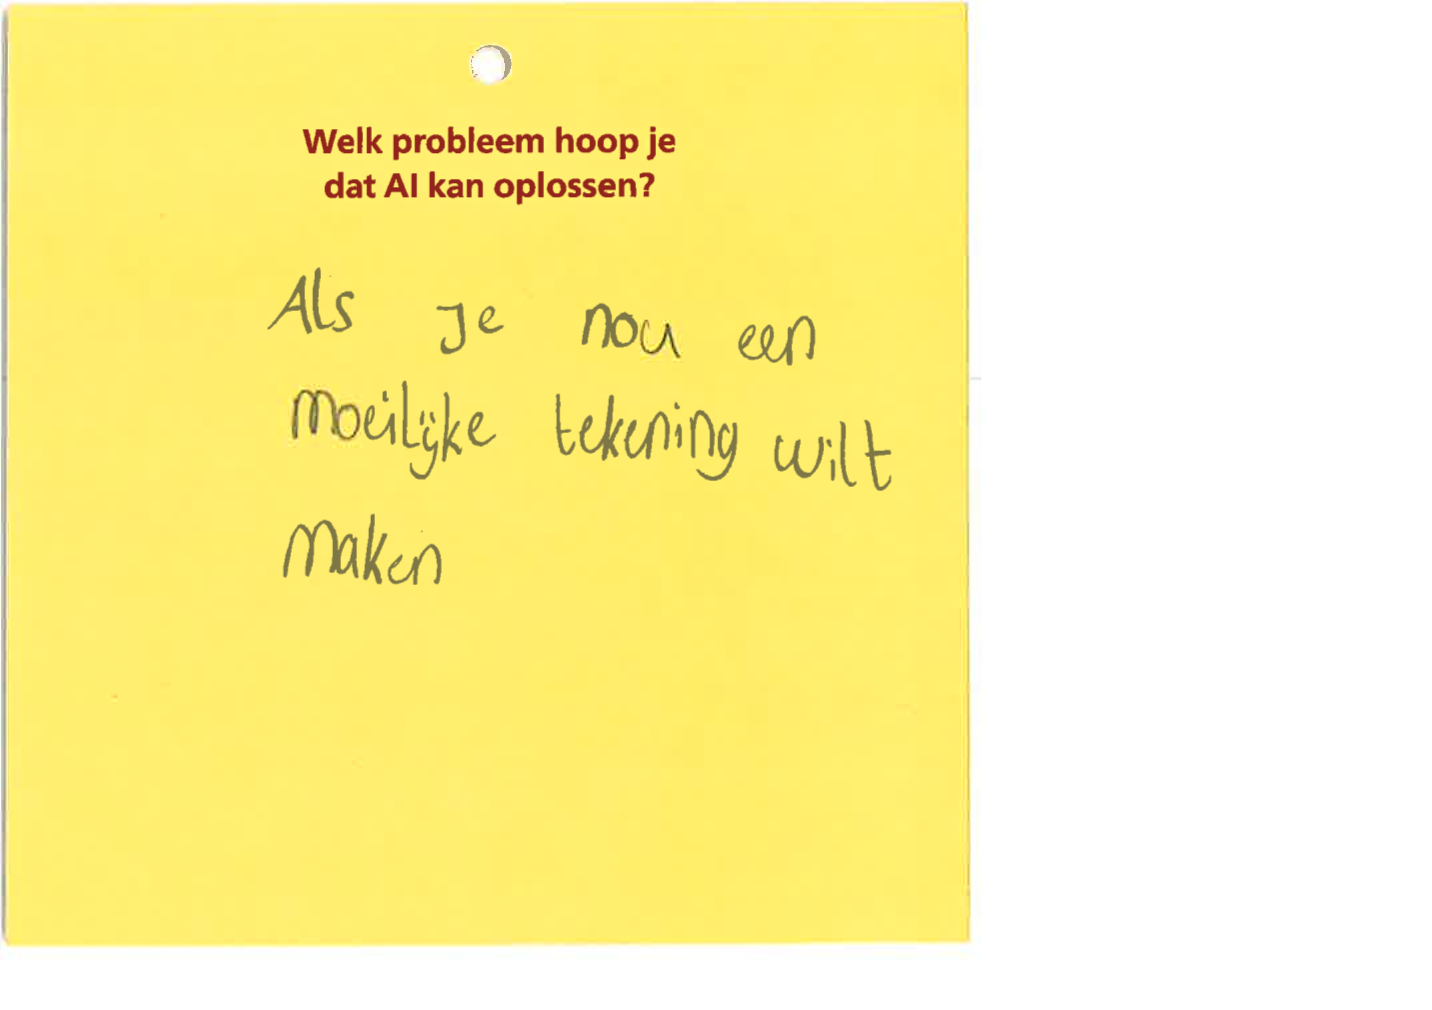 Welk probleem hoop je
dat AI kan oplossen?
Als je nou een
moeilijke tekening wilt
maken